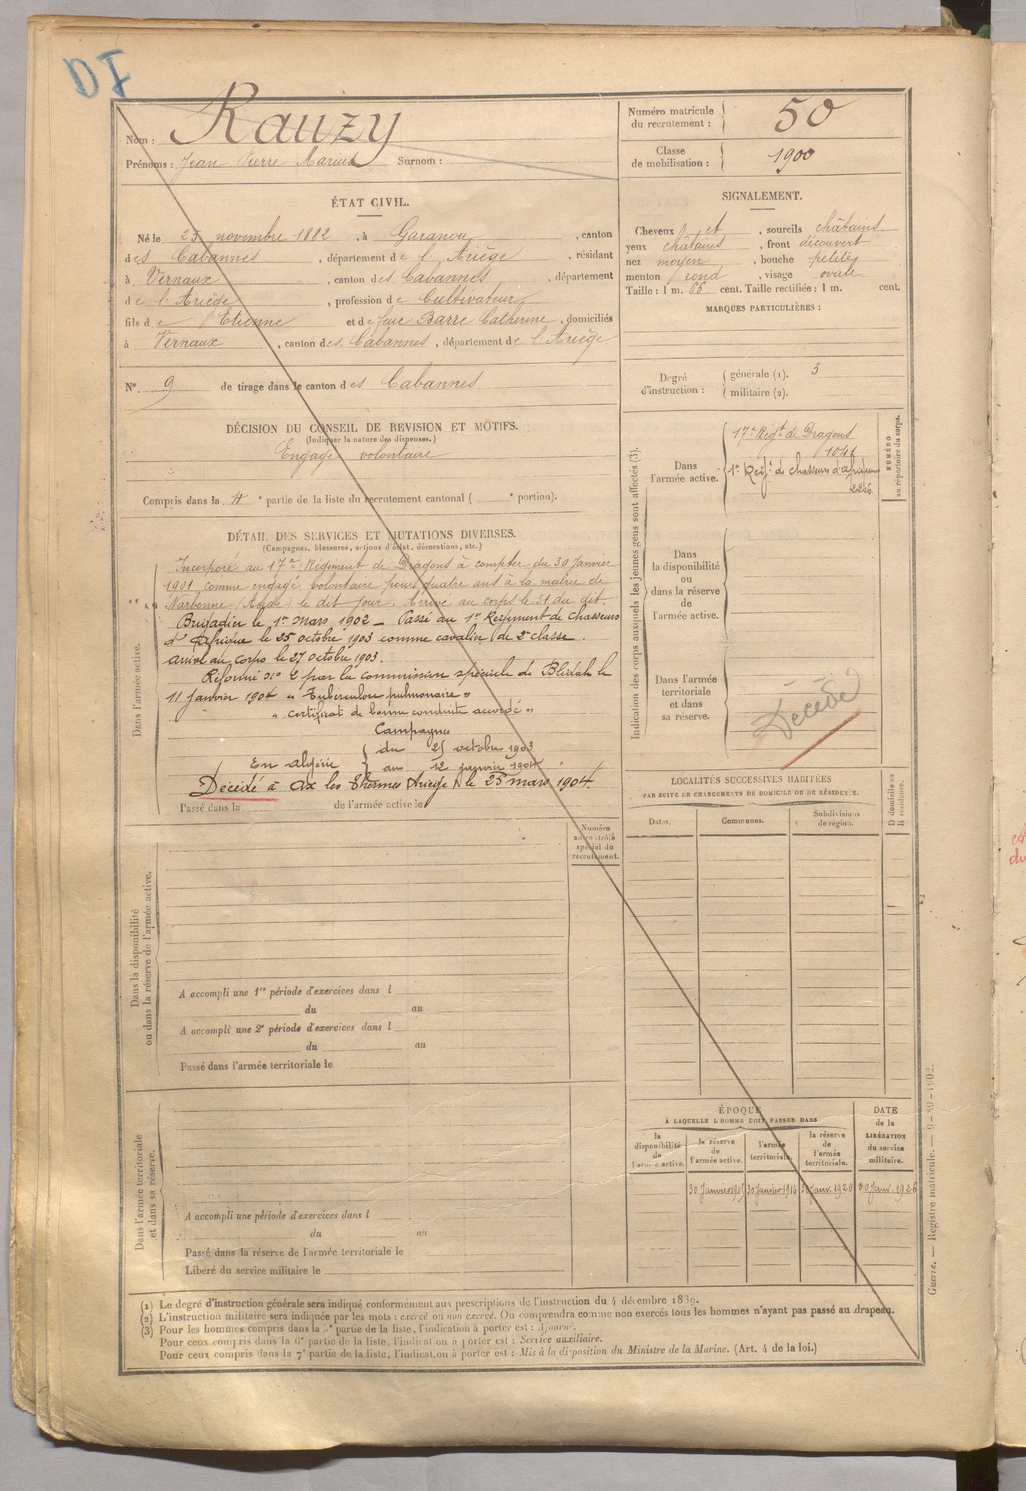 DI
Nom : Rauzy
Prénoms : Jean Pierre Marius Surnom :
Numéro matricule du recrutement : 50
Classe de mobilisation : 1900
ÉTAT CIVIL.
Né le 25 novembre 1882, à Garanou, canton
des Cabannes, département de l'Ariège, résidant
à Vernaux, canton des Cabannes, département
de l'Ariège, profession de Cultivateur
fils de Etienne et de feue Barre Catherine, domiciliés
à Vernaux, canton des Cabannes, département de l'Ariège
N° 9 de tirage dans le canton des Cabannes
DÉCISION DU CONSEIL DE REVISION ET MOTIFS.
(Indiquer la nature des dispenses.)
Engagé volontaire
Compris dans la 4e partie de la liste du recrutement cantonal ( e portion).
SIGNALEMENT.
Cheveux et, sourcils châtains
yeux châtains, front découvert
nez moyen, bouche petite
menton rond, visage ovale
Taille : 1 m. 66 cent. Taille rectifiée : 1 m. cent.
MARQUES PARTICULIÈRES :
Degré d'instruction : générale (1). 3
militaire (2).
DÉTAIL DES SERVICES ET MUTATIONS DIVERSES.
(Campagnes, blessures, actions d'éclat, décorations, etc.)
Dans l'armée active.
Incorporé au 17e Régiment de Dragons à compter du 30 Janvier
1901 comme engagé volontaire pour quatre ans à la mairie de
Narbonne (Aude) le dit jour. Arrivé au corps le 31 du dit.
Brigadier le 1er Mars 1902 – Passé au 1er Régiment de Chasseurs
d'Afrique le 25 octobre 1903 comme cavalier de 2e classe.
arrivé au corps le 27 octobre 1903.
Réformé n° 2 par la commission spéciale de Blidah le
11 Janvier 1904 "Tuberculose pulmonaire"
"Certificat de bonne conduite accordé"
Campagnes
En Algérie du 25 octobre 1903
au 12 janvier 1904
Décédé à Ax les Thermes Ariège le 23 mars 1904.
Passé dans la de l'armée active le
Indication des corps auxquels les jeunes gens sont affectés (3).
NUMÉRO au répertoire du corps.
Dans l'armée active.
17e Régt de Dragons
1er Régt de chasseurs d'afrique
Dans la disponibilité ou dans la réserve de l'armée active.
Dans l'armée territoriale et dans sa réserve.
Décédé
LOCALITÉS SUCCESSIVES HABITÉES
PAR SUITE DE CHANGEMENTS DE DOMICILE OU DE RÉSIDENCE.
Dates. Communes. Subdivisions de région. D domicile ou R résidence.
Numéro au contrôle spécial du recrutement.
Dans la disponibilité
ou dans la réserve de l'armée active.
A accompli une 1re période d'exercices dans l
du au
A accompli une 2e période d'exercices dans l
du au
Passé dans l'armée territoriale le
Dans l'armée territoriale
et dans sa réserve.
A accompli une période d'exercices dans l
du au
Passé dans la réserve de l'armée territoriale le
Libéré du service militaire le
ÉPOQUE
À LAQUELLE L'HOMME DOIT PASSER DANS
la disponibilité de l'armée active.
la réserve de l'armée active.
l'armée territoriale.
la réserve de l'armée territoriale.
DATE de la LIBÉRATION du service militaire.
30 Janvier 30 Janvier 1914 30 Janv. 1920 30 Janv. 1926
Guerre. — Registre matricule. —
(1) Le degré d'instruction générale sera indiqué conformément aux prescriptions de l'instruction du 4 décembre 1889.
(2) L'instruction militaire sera indiquée par les mots : exercé ou non exercé. On comprendra comme non exercés tous les hommes n'ayant pas passé au drapeau.
(3) Pour les hommes compris dans la partie de la liste, l'indication à porter est : Ajourné.
Pour ceux compris dans la 6e partie de la liste, l'indication à porter est : Service auxiliaire.
Pour ceux compris dans la 7e partie de la liste, l'indication à porter est : Mis à la disposition du Ministre de la Marine. (Art. 4 de la loi.)